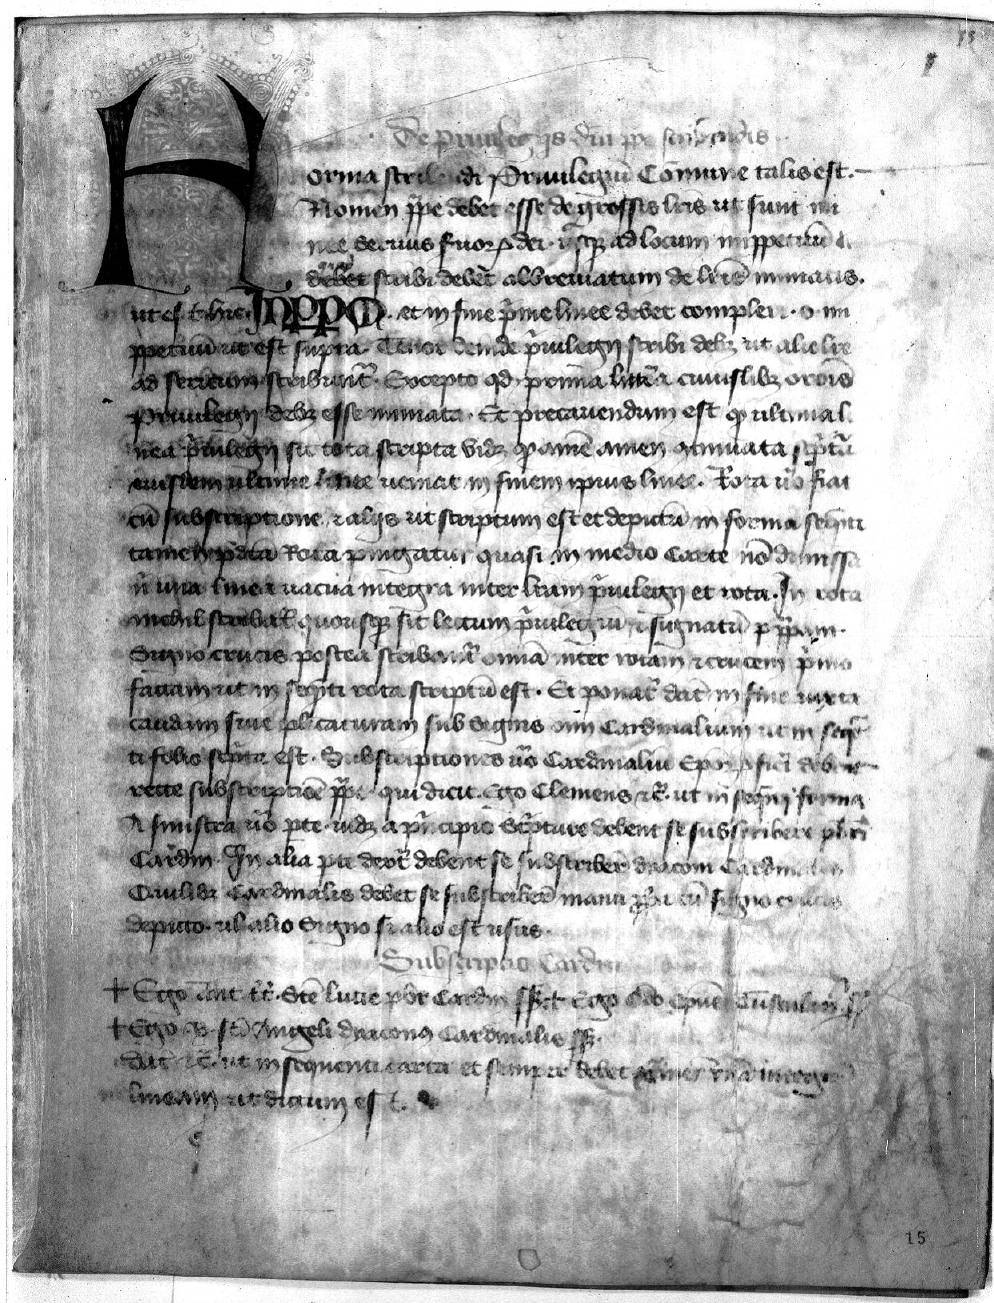 De privilegijs dni pp scribendis
orma scribendi Privilegiū Comune talis est.
Nomen ppe debet esse de grossis lris ut sunt mi
nee Servus fuorꝝ dei. usqꝫ ad locum inppetuū
debet scribi debet abbreviatum de lris minutis.
ut est hic. INPPM. et in fine p̄me linee debet compleri. o. in
ppetuū ut est supra. Tenor deinde p̄vilegij scribi debꝫ ut alie lre
ad seriem scribunt̄. Excepto qd prima littera cuiuslibꝫ ordis
Privilegij debꝫ esse miniata. Et precavendum est qꝫ ultima l
nea p̄vilegij sit tota scripta vidꝫ qꝫ amē amen
eiusdem ultime linee veniat in finem ipius linee. Rota v̄o fiat
cū subscriptione ⁊ alijs ut scriptum est et depictū in forma seqn̄ti
tamen p̄dcta Rota pingatur quasi in medio Carte nō dimissa
n̄ una linea vacua integra inter lram p̄vilegij et rota. In rota
nichil scribat̄ quousqꝫ sit lectum p̄vilegiū ⁊ signatū p ppam.
Signo crucis postea scribunt̄ omia inter rotam ⁊ crucem p̄mo
factam ut in seqn̄ti rota scriptū est. Et ponat̄ dat̄ in fine iuxta
caudam sive plicaturam sub signis om̄ Cardinalium ut in seqn̄
ti folio sc̄pta est. Subscriptiones v̄o Cardinaliū Ep̄orꝝ fieri debent
recte subscriptōe ppe qui dicit. Ego Clemens ⁊c̄. ut in seqn̄ti forma
A sinistra v̄o pte. vidꝫ a p̄ncipio Sc̄pture debent se subscribere pbrī
Cardin. In alia pte dext̄ debent se subscribere diaconi Cardinales
Quilibꝫ Cardinalis debet se subscribere manu pp̄a cū signo crucis
depicto. ul alio Signo si alio est usus.
Subscriptio Cardin
✝ Ego Ant tt̄. Sc̄e Lucie pbr Cardin ss. ✝ Ego Odo epus Tusculan̄ ss
✝ Ego B. sc̄i Angeli diaconꝰ Cardinalis ss.
Dat ⁊c̄. ut in sequenti carta et semper debet
lineam ut dictum est.
15